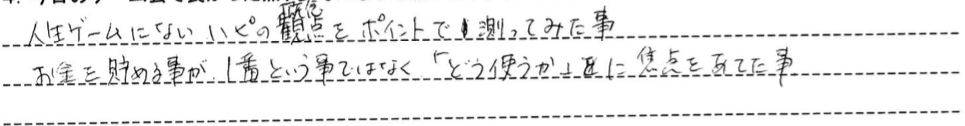 人生ゲームにない、いくつの観点をポイントで測ってみた事
お金を貯める事が、1番という事ではなく、「どう使うか」に焦点をあてた事